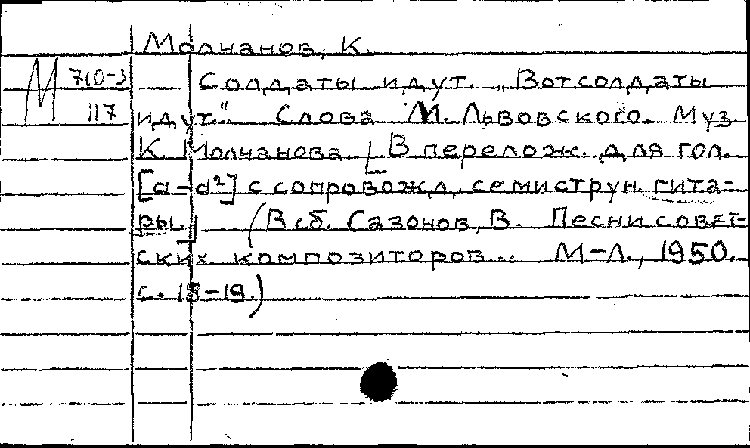 Молчанов, К.
М 710-3 Солдаты идут. „Вот солдаты
117 идут." Слова М. Львовского. Муз.
К. Молчанова. [В перелож. для гол.
[a-d²] с сопровожд. семиструн. гита-
ры.] (В сб. Сазонов, В. Песни совет-
ских композиторов.. М-Л., 1950.
с. 18-19.)